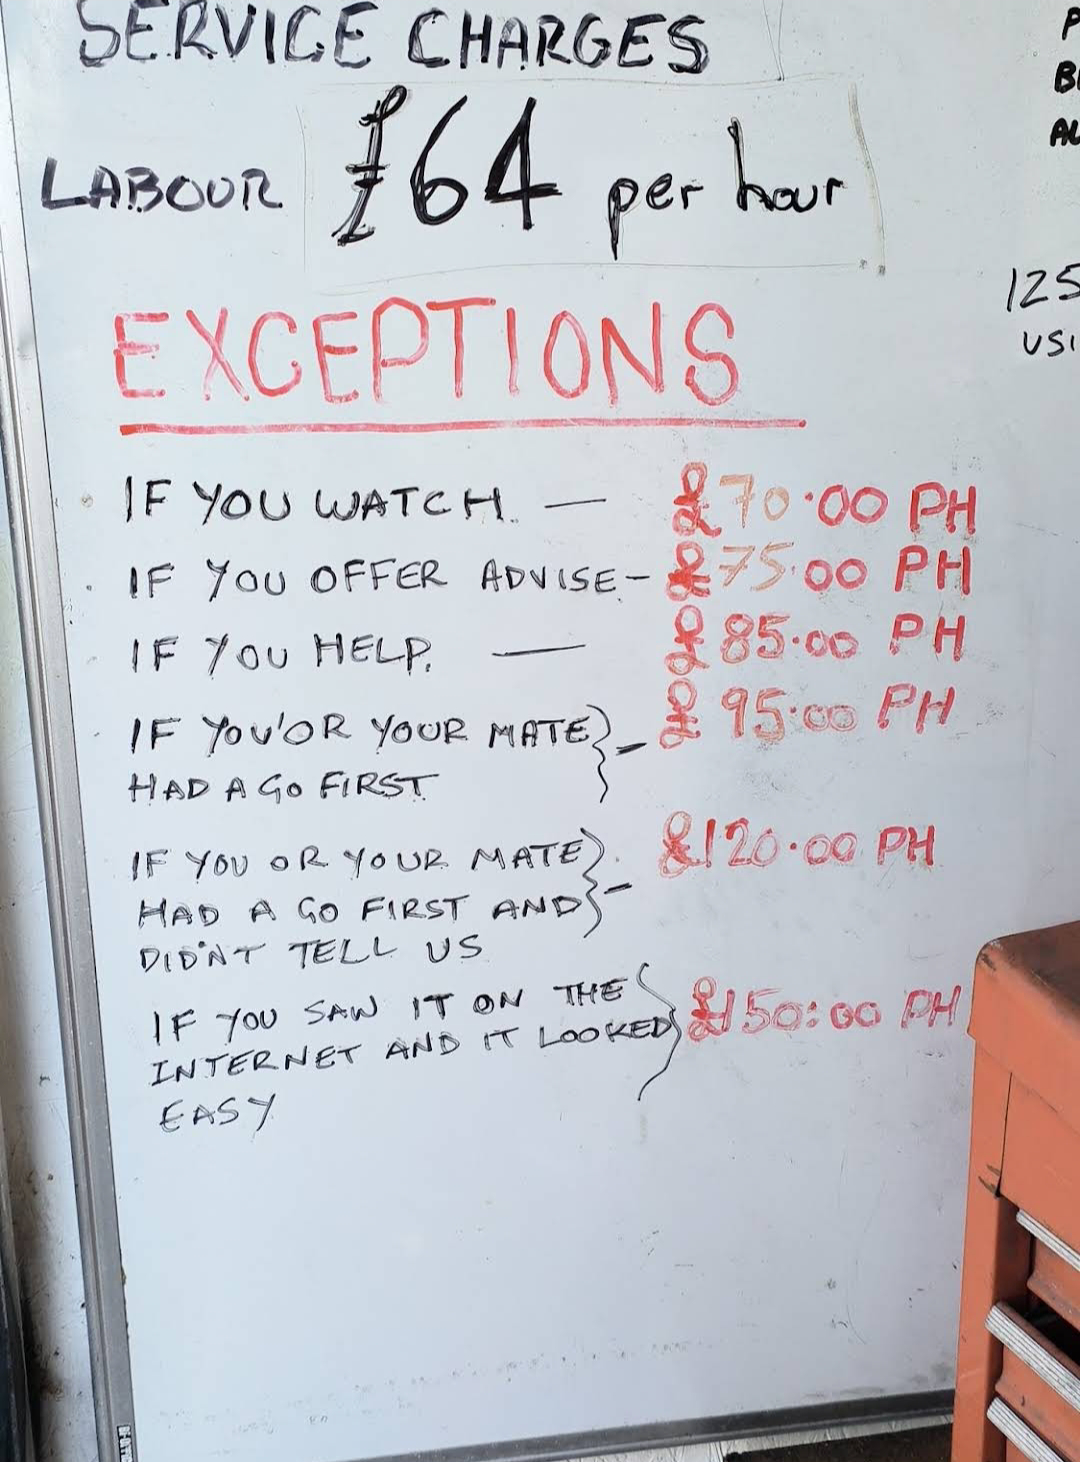 SERVICE CHARGES
LABOUR £64 per hour
EXCEPTIONS
IF YOU WATCH. — £70.00 PH
IF YOU OFFER ADVISE - £75.00 PH
IF YOU HELP. — £85.00 PH
IF YOU'OR YOUR MATE } - £95.00 PH
HAD A GO FIRST
IF YOU OR YOUR MATE } - £120.00 PH
HAD A GO FIRST AND
DIDN'T TELL US
IF YOU SAW IT ON THE
INTERNET AND IT LOOKED } £150:00 PH
EASY
125
USI